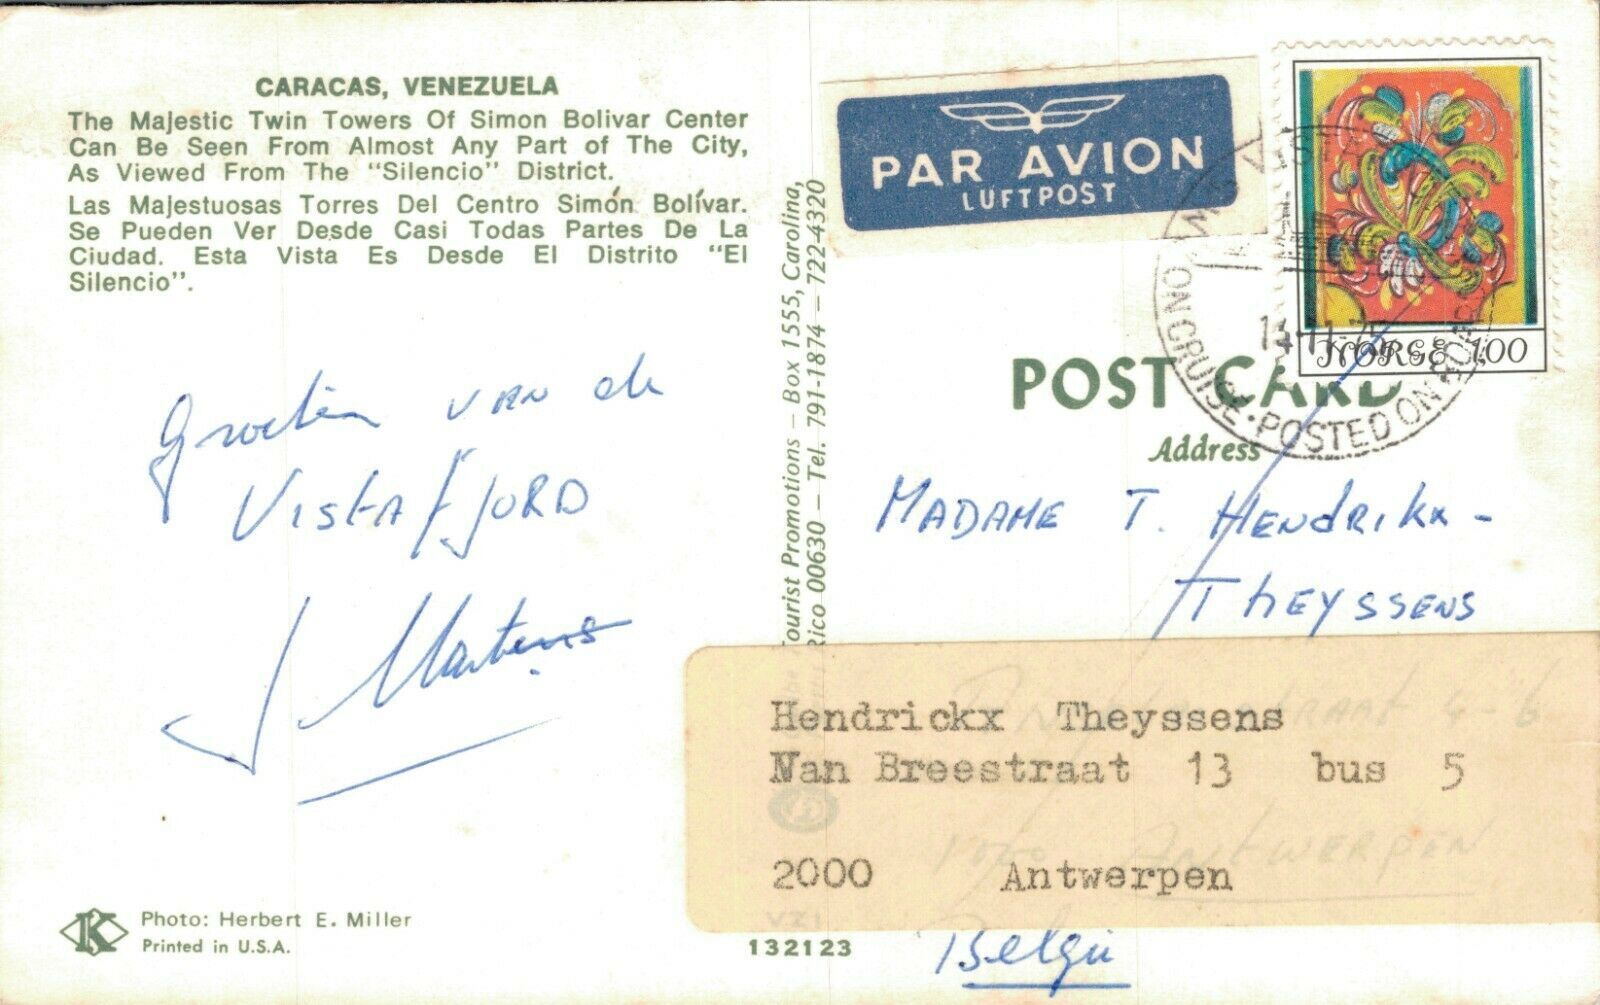 CARACAS, VENEZUELA
The Majestic Twin Towers Of Simon Bolivar Center
Can Be Seen From Almost Any Part of The City,
As Viewed From The "Silencio" District.
Las Majestuosas Torres Del Centro Simón Bolívar.
Se Pueden Ver Desde Casi Todas Partes De La
Ciudad. Esta Vista Es Desde El Distrito "El
Silencio".
Groeten van de
VISTAFJORD
J Martens
K
Photo: Herbert E. Miller
Printed in U.S.A.
Tourist Promotions - Box 1555, Carolina,
Rico 00630 - Tel. 791-1874 - 722-4320
PAR AVION
LUFTPOST
NORGE 100
ON CRUISE · POSTED ON BOARD
POST CARD
Address
MADAME T. HENDRIKX -
THEYSSENS
Hendrickx Theyssens
Van Breestraat 13 bus 5
2000 Antwerpen
STRAAT 4-6
ANTWERPEN
VZ1
132123
België